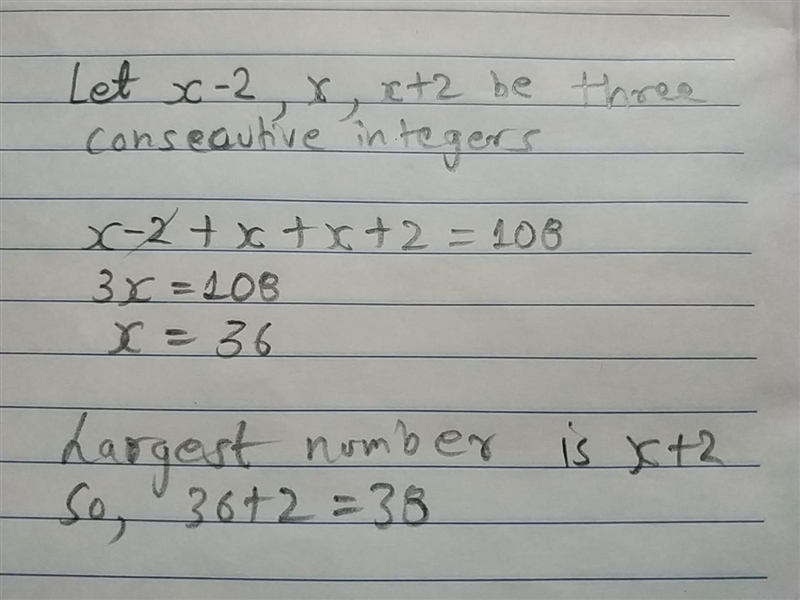 Let x-2, x, x+2 be three
conseautive integers
x-2+x+x+2=108
3x=108
x=36
Largest number is x+2
So, 36+2=38